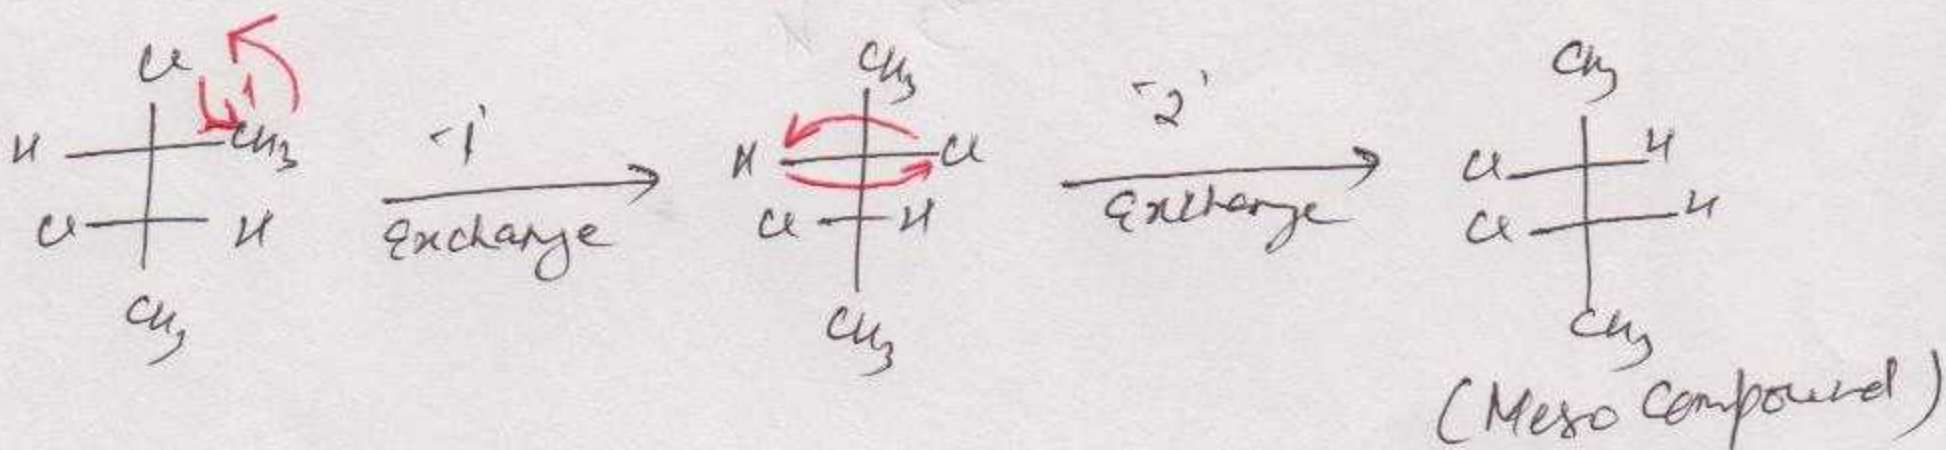 Cl
H CH3
Cl H
CH3
1
'1'
Exchange
CH3
H Cl
Cl H
CH3
'2'
Exchange
CH3
Cl H
Cl H
CH3
(Meso Compound)